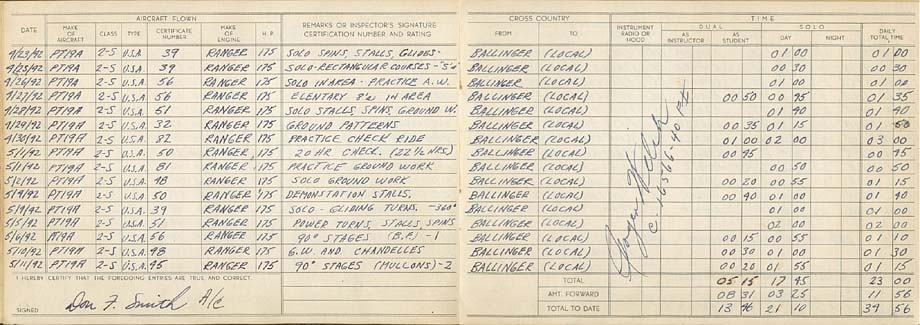 AIRCRAFT FLOWN
CROSS COUNTRY TIME
DATE MAKE OF AIRCRAFT CLASS TYPE CERTIFICATE NUMBER MAKE OF ENGINE H.P. REMARKS OR INSPECTOR'S SIGNATURE CERTIFICATION NUMBER AND RATING FROM TO INSTRUMENT RADIO OR HOOD DUAL AS INSTRUCTOR AS STUDENT SOLO DAY NIGHT DAILY TOTAL TIME
4/23/42 PT19A 2-S U.S.A. 39 RANGER 175 SOLO SPINS, STALLS, GLIDES. BALLINGER (LOCAL) 01 00 01 00
4/25/42 PT19A 2-S U.S.A. 39 RANGER 175 SOLO-RECTANGULAR COURSES - BALLINGER (LOCAL) 00 30 00 30
4/26/42 PT19A 2-S U.S.A. 56 RANGER 175 SOLO IN AREA - PRACTICE A.W. BALLINGER (LOCAL) 01 00 01 00
4/27/42 PT19A 2-S U.S.A. 56 RANGER 175 ELENTARY 8's IN AREA BALLINGER (LOCAL) 00 50 00 45 01 35
4/28/42 PT19A 2-S U.S.A. 51 RANGER 175 SOLO STALLS, SPINS, GROUND W. BALLINGER (LOCAL) 01 40 01 40
4/29/42 PT19A 2-S U.S.A. 32 RANGER 175 GROUND PATTERNS BALLINGER (LOCAL) 00 35 01 15 01 50
4/30/42 PT19A 2-S U.S.A. 82 RANGER 175 PRACTICE CHECK RIDE BALLINGER (LOCAL) 01 00 02 00 03 00
5/1/42 PT19A 2-S U.S.A. 50 RANGER 175 20 HR CHECK (22½ HRS) BALLINGER (LOCAL) 00 45 00 45
5/1/42 PT19A 2-S U.S.A. 81 RANGER 175 PRACTICE GROUND WORK BALLINGER (LOCAL) 00 50 00 50
5/2/42 PT19A 2-S U.S.A. 48 RANGER 175 SOLO GROUND WORK BALLINGER (LOCAL) 00 20 00 55 01 15
5/4/42 PT19A 2-S U.S.A. 50 RANGER 175 DEMONSTATION STALLS, BALLINGER (LOCAL) 00 40 01 00 01 40
5/4/42 PT19A 2-S U.S.A. 39 RANGER 175 SOLO - GLIDING TURNS. -360° BALLINGER (LOCAL) 01 00 01 00
5/5/42 PT19A 2-S U.S.A. 51 RANGER 175 POWER TURNS, STALLS, SPINS BALLINGER (LOCAL) 02 00 02 00
5/6/42 PT19A 2-S U.S.A. 56 RANGER 175 90° STAGES - 1 BALLINGER (LOCAL) 00 15 00 55 01 10
5/10/42 PT19A 2-S U.S.A. 48 RANGER 175 G.W. AND CHANDELLES BALLINGER (LOCAL) 00 30 01 00 01 30
5/11/42 PT19A 2-S U.S.A. 45 RANGER 175 90° STAGES (MULLONS) - 2 BALLINGER (LOCAL) 00 20 01 55 01 15
I HEREBY CERTIFY THAT THE FOREGOING ENTRIES ARE TRUE AND CORRECT.
SIGNED Don F. Smith A/c
TOTAL 05 15 17 45 23 00
AMT. FORWARD 08 31 03 25 11 56
TOTAL TO DATE 13 46 21 10 34 56